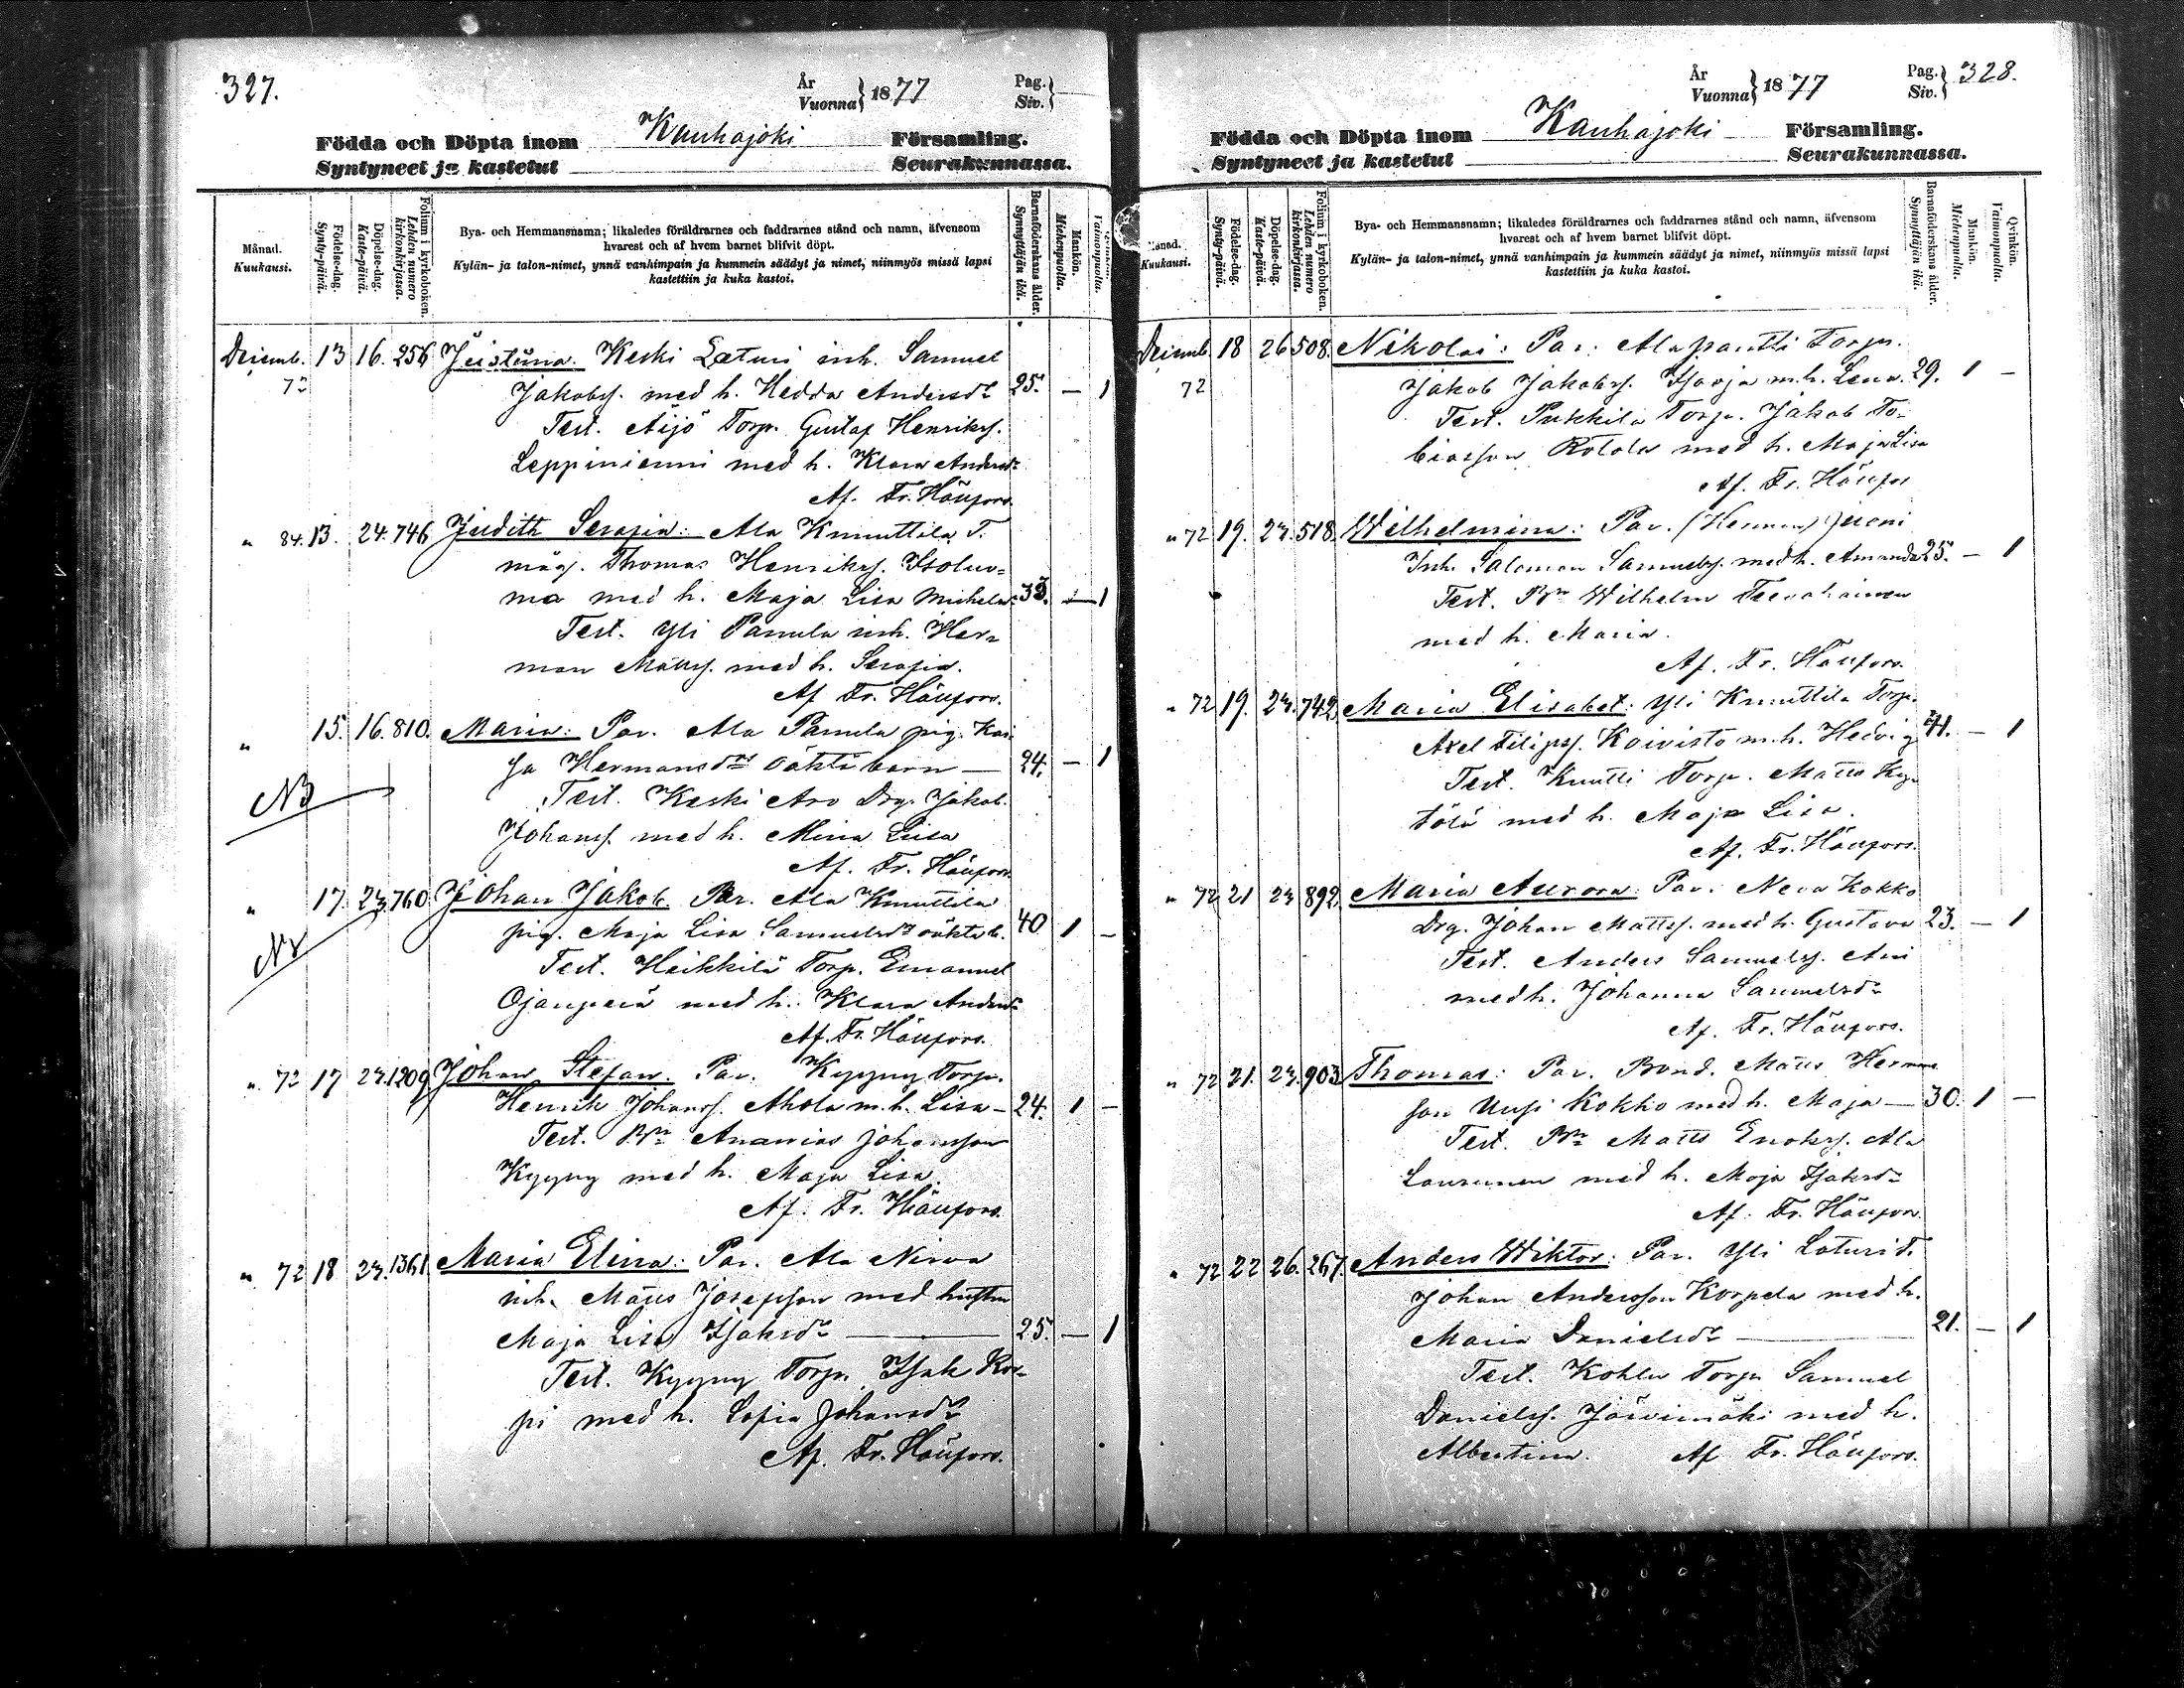 327.
År
Vuonna } 1877
Pag.
Siv. }
Födda och Döpta inom Kauhajoki Församling.
Syntyneet ja kastetut Seurakunnassa.
Månad.
Kuukausi.
Födelse-dag.
Synty-päivä.
Döpelse-dag.
Kaste-päivä.
Folium i kyrkoboken.
Lehden numero kirkonkirjassa.
Bya- och Hemmansnamn; likaledes föräldrarnes och faddrarnes stånd och namn, äfvensom
hvarest och af hvem barnet blifvit döpt.
Kylän- ja talon-nimet, ynnä vanhimpain ja kummein säädyt ja nimet, niinmyös missä lapsi
kastettiin ja kuka kastoi.
Barnaföderskans ålder.
Synnyttäjän ikä.
Mankön.
Miehenpuolia.
Vaimonpuolia.
Decemb. 13 16. 256 Keski Læturi inh. Samuel
72 Jakobs. med h. Hedda Andersdr 25. — 1
Test. Äijö Torp. Gustaf Henriks.
Leppiniemi med h. Klara Andersdr
Af. Fr. Häufors.
" 84. 13. 24. 746 Judith Serafia: Ala Knuuttila T.
måg. Thomas Henriks. Isoluo=
ma med h. Maja Lisa Michelsdr 33. — 1
Test. Yli Panula inh. Her=
man Matts. med h. Serafia.
Af Fr. Häufors.
" 15. 16. 810. Maria: Par. Ala Panula pig. Kai
sa Hermansdrs oäkta barn — 24. — 1
NB
Test. Keski Aro Drg. Jakob
Johans. med h. Mina Lisa
Af. Fr. Häufors.
" 17. 23. 760 Johan Jakob. Par. Ala Knuuttila
pig. Maja Lisa Samuelsdr oäkta b. 40 1 —
Test. Heikkilä Torp. Emanuel
Ojanperä med h. Klara Andersdr
Af. Fr. Häufors.
" 72 17 23. 1209 Johan Stefan. Par. Kyyny Torp.
Henrik Johans. Ahola m.h. Lisa — 24. 1 —
Test. Bn Ananias Johansson
Kyyny med h. Maja Lisa.
Af. Fr. Häufors.
" 72 18 23. 1361 Maria Elina: Par. Ala Nirva
inh. Matts Josepsson med hustru
Maja Lisa Isaksdr — 25. — 1
Test. Kyyny Torp. Isak Kor-
pi med h. Sofia Johansdr
Af. Fr. Häufors.
År
Vuonna } 1877
Pag.
Siv. } 328.
Födda och Döpta inom Kauhajoki Församling.
Syntyneet ja kastetut Seurakunnassa.
Månad.
Kuukausi.
Födelse-dag.
Synty-päivä.
Döpelse-dag.
Kaste-päivä.
Folium i kyrkoboken.
Lehden numero kirkonkirjassa.
Bya- och Hemmansnamn; likaledes föräldrarnes och faddrarnes stånd och namn, äfvensom
hvarest och af hvem barnet blifvit döpt.
Kylän- ja talon-nimet, ynnä vanhimpain ja kummein säädyt ja nimet, niinmyös missä lapsi
kastettiin ja kuka kastoi.
Barnaföderskans ålder.
Synnyttäjän ikä.
Mankön.
Miehenpuolia.
Qvinkön.
Vaimonpuolia.
Decemb. 18 26 508. Nikolai: Par. Alapantti Torpr.
72 Jakob Jakobs. m.h. Lena. 29. 1 —
Test. Pukkila Torp. Jakob To-
biasson Rotola med h. Maja Lisa
Af. Fr. Häufors
" 72 19. 23. 518. Wilhelmina: Par.
Inh. Salomon Samuels. med h. Amanda 25. — 1
Test. Bn Wilhelm
med h. Maria.
Af. Fr. Häufors.
" 72 19. 23. 742. Maria Elisabet: Yli Knuuttila Torp.
Axel Filips. Koivisto m.h. Hedvig 41. — 1
Test. Knutti Torp. Matts Ky-
tölä med h. Maja Lisa.
Af. Fr. Häufors.
" 72 21 23 892. Maria Aurora: Par. Neva Kokko
Drg. Johan Matts. med h. Gustava 23. — 1
Test. Anders Samuels.
med h. Johanna Samuelsdr
Af. Fr. Häufors.
" 72 21. 23. 903 Thomas: Par. Bond. Matts Herman
son Uusi Kokko med h. Maja — 30. 1 —
Test. Bn Matts Enoks. Ala
Laurinen med h. Maja Isaksdr
Af. Fr. Häufors.
" 72 22 26. 267. Anders Wiktor: Par. Yli Laturi t.
Johan Andersson Korpela med h.
Maria Danielsdr — 21. — 1
Test. Kohlu Torpr Samuel
Daniels. Järvimäki med h.
Albertina. Af Fr. Häufors.